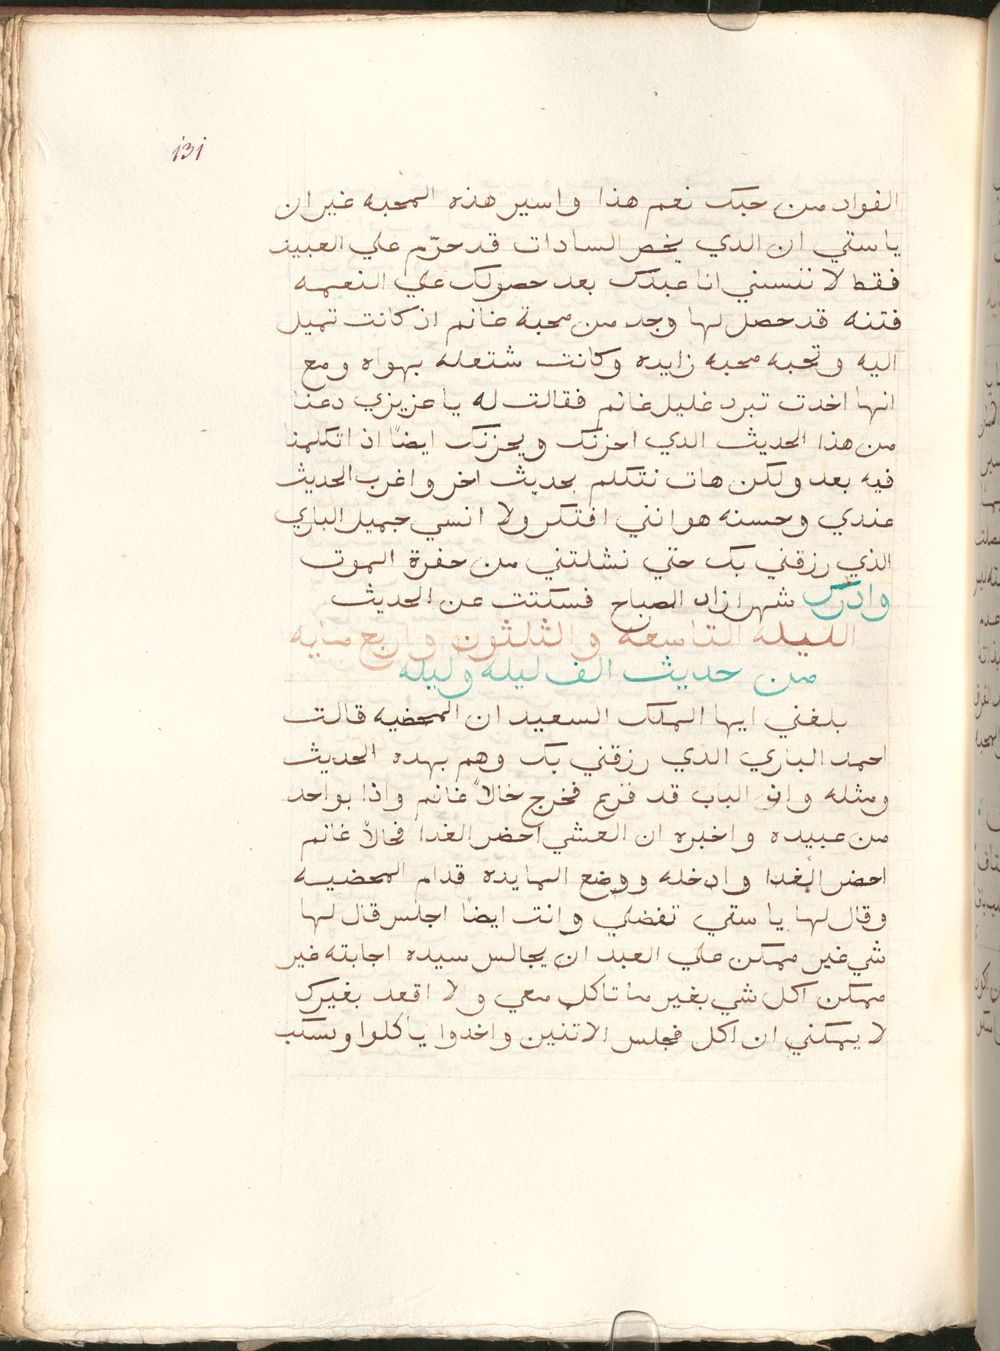 131
الفواد من حبك نعم هذا واسير هذه المحبه غير ان
ياستي ان الدي يخص السادات قد حرّم علي العبيد
فقط لا تنسني انا عبدك بعد حصولك علي النعمه
فتنه قد حصل لها وجد من محبة غانم اذ كانت تميل
اليه وتحبه محبه زايده وكانت شتعله بهواه ومع
انها اخدت تبرد غليل غانم فقالت له يا عزيزي دعنا
من هذا الحديث الدي احزنك ويحزنك ايضاً اذ اتكلمنا
فيه بعد ولكن هات نتكلم بحديث اخر واغرب الحديث
عندي وحسنه هو انني افتكر ولا انسي جميل الباري
الذي رزقني بك حتي نشلتني من حفرة الموت
وادرك شهرازاد الصباح فسكتت عن الحديث
الليله التاسعه والثلثون واربع مايه
من حديث الف ليله وليله
بلغني ايها الملك السعيد ان المحضيه قالت
احمد الباري الذي رزقني بك وهم بهده الحديث
ومثله واذ الباب قد قرع فخرج حالاً غانم واذا بواحد
من عبيده واخبره ان العشي احضر الغدا فحالاً غانم
احضر الغدا وادخله ووضع المايده قدام المحضيه
وقال لها يا ستي تفضلي وانت ايضاً اجلس قال لها
شي غير ممكن علي العبد ان يجالس سيده اجابته غير
ممكن اكل شي بغير ما تاكل معي ولا اقعد بغيرك
لا يمكني ان اكل فجلس الاتنين واخدوا ياكلوا وبسكب